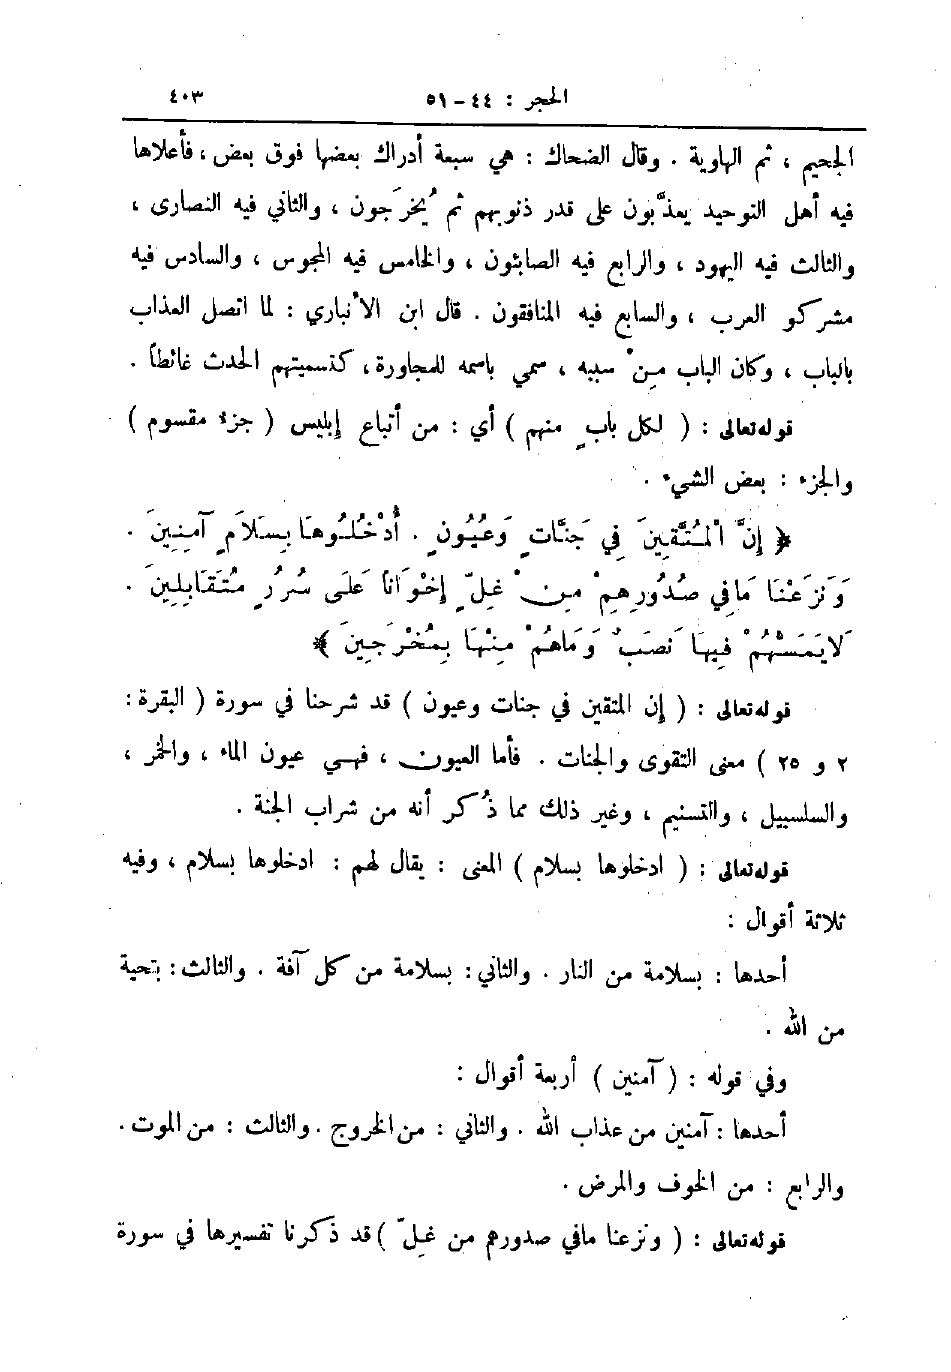 الحجر : ٤٤ - ٥١ ٤٠٣
الجحيم ، ثم الهاوية . وقال الضحاك : هي سبعة أدراك بعضها فوق بعض ، فأعلاها
فيه أهل التوحيد يعذَّبون على قدر ذنوبهم ثم يُخرَجون ، والثاني فيه النصارى ،
والثالث فيه اليهود ، والرابع فيه الصابئون ، والخامس فيه المجوس ، والسادس فيه
مشركو العرب ، والسابع فيه المنافقون . قال ابن الأنباري : لما اتصل العذاب
بالباب ، وكان الباب مِنْ سببه ، سمي باسمه للمجاورة ، كتسميتهم الحدث غائطاً .
قوله تعالى : ( لكل بابٍ منهم ) أي : من أتباع إبليس ( جزء مقسوم )
والجزء : بعض الشيء .
﴿ إِنَّ الْمُتَّقِينَ فِي جَنَّاتٍ وَعُيُونٍ . أُدْخُلُوهَا بِسَلَامٍ آمِنِينَ .
وَنَزَعْنَا مَا فِي صُدُورِهِمْ مِنْ غِلٍّ إِخْوَاناً عَلَى سُرُرٍ مُتَقَابِلِينَ .
لَا يَمَسُّهُمْ فِيهَا نَصَبٌ وَمَا هُمْ مِنْهَا بِمُخْرَجِينَ ﴾
قوله تعالى : ( إن المتقين في جنات وعيون ) قد شرحنا في سورة ( البقرة :
٢ و ٢٥ ) معنى التقوى والجنات . فأما العيون ، فهي عيون الماء ، والخمر ،
والسلسبيل ، والتسنيم ، وغير ذلك مما ذُكر أنه من شراب الجنة .
قوله تعالى : ( ادخلوها بسلام ) المعنى : يقال لهم : ادخلوها بسلام ، وفيه
ثلاثة أقوال :
أحدها : بسلامة من النار . والثاني : بسلامة من كل آفة . والثالث : بتحية
من الله .
وفي قوله : ( آمنين ) أربعة أقوال :
أحدها : آمنين من عذاب الله . والثاني : من الخروج . والثالث : من الموت .
والرابع : من الخوف والمرض .
قوله تعالى : ( ونزعنا مافي صدورهم من غلّ ) قد ذكرنا تفسيرها في سورة